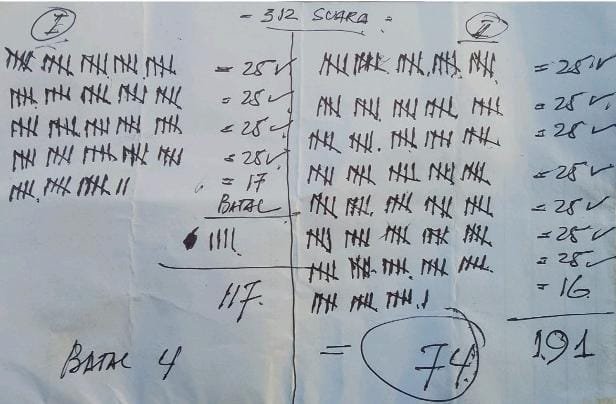 = 312 SUARA =
I
= 25 ✓
= 25 ✓
= 25 ✓
= 25 ✓
= 17
BATAL
117.
BATAL 4
II
= 25 ✓
= 25 ✓
= 25 ✓
= 25 ✓
= 25 ✓
= 25 ✓
= 25 ✓
= 16
191
= 74